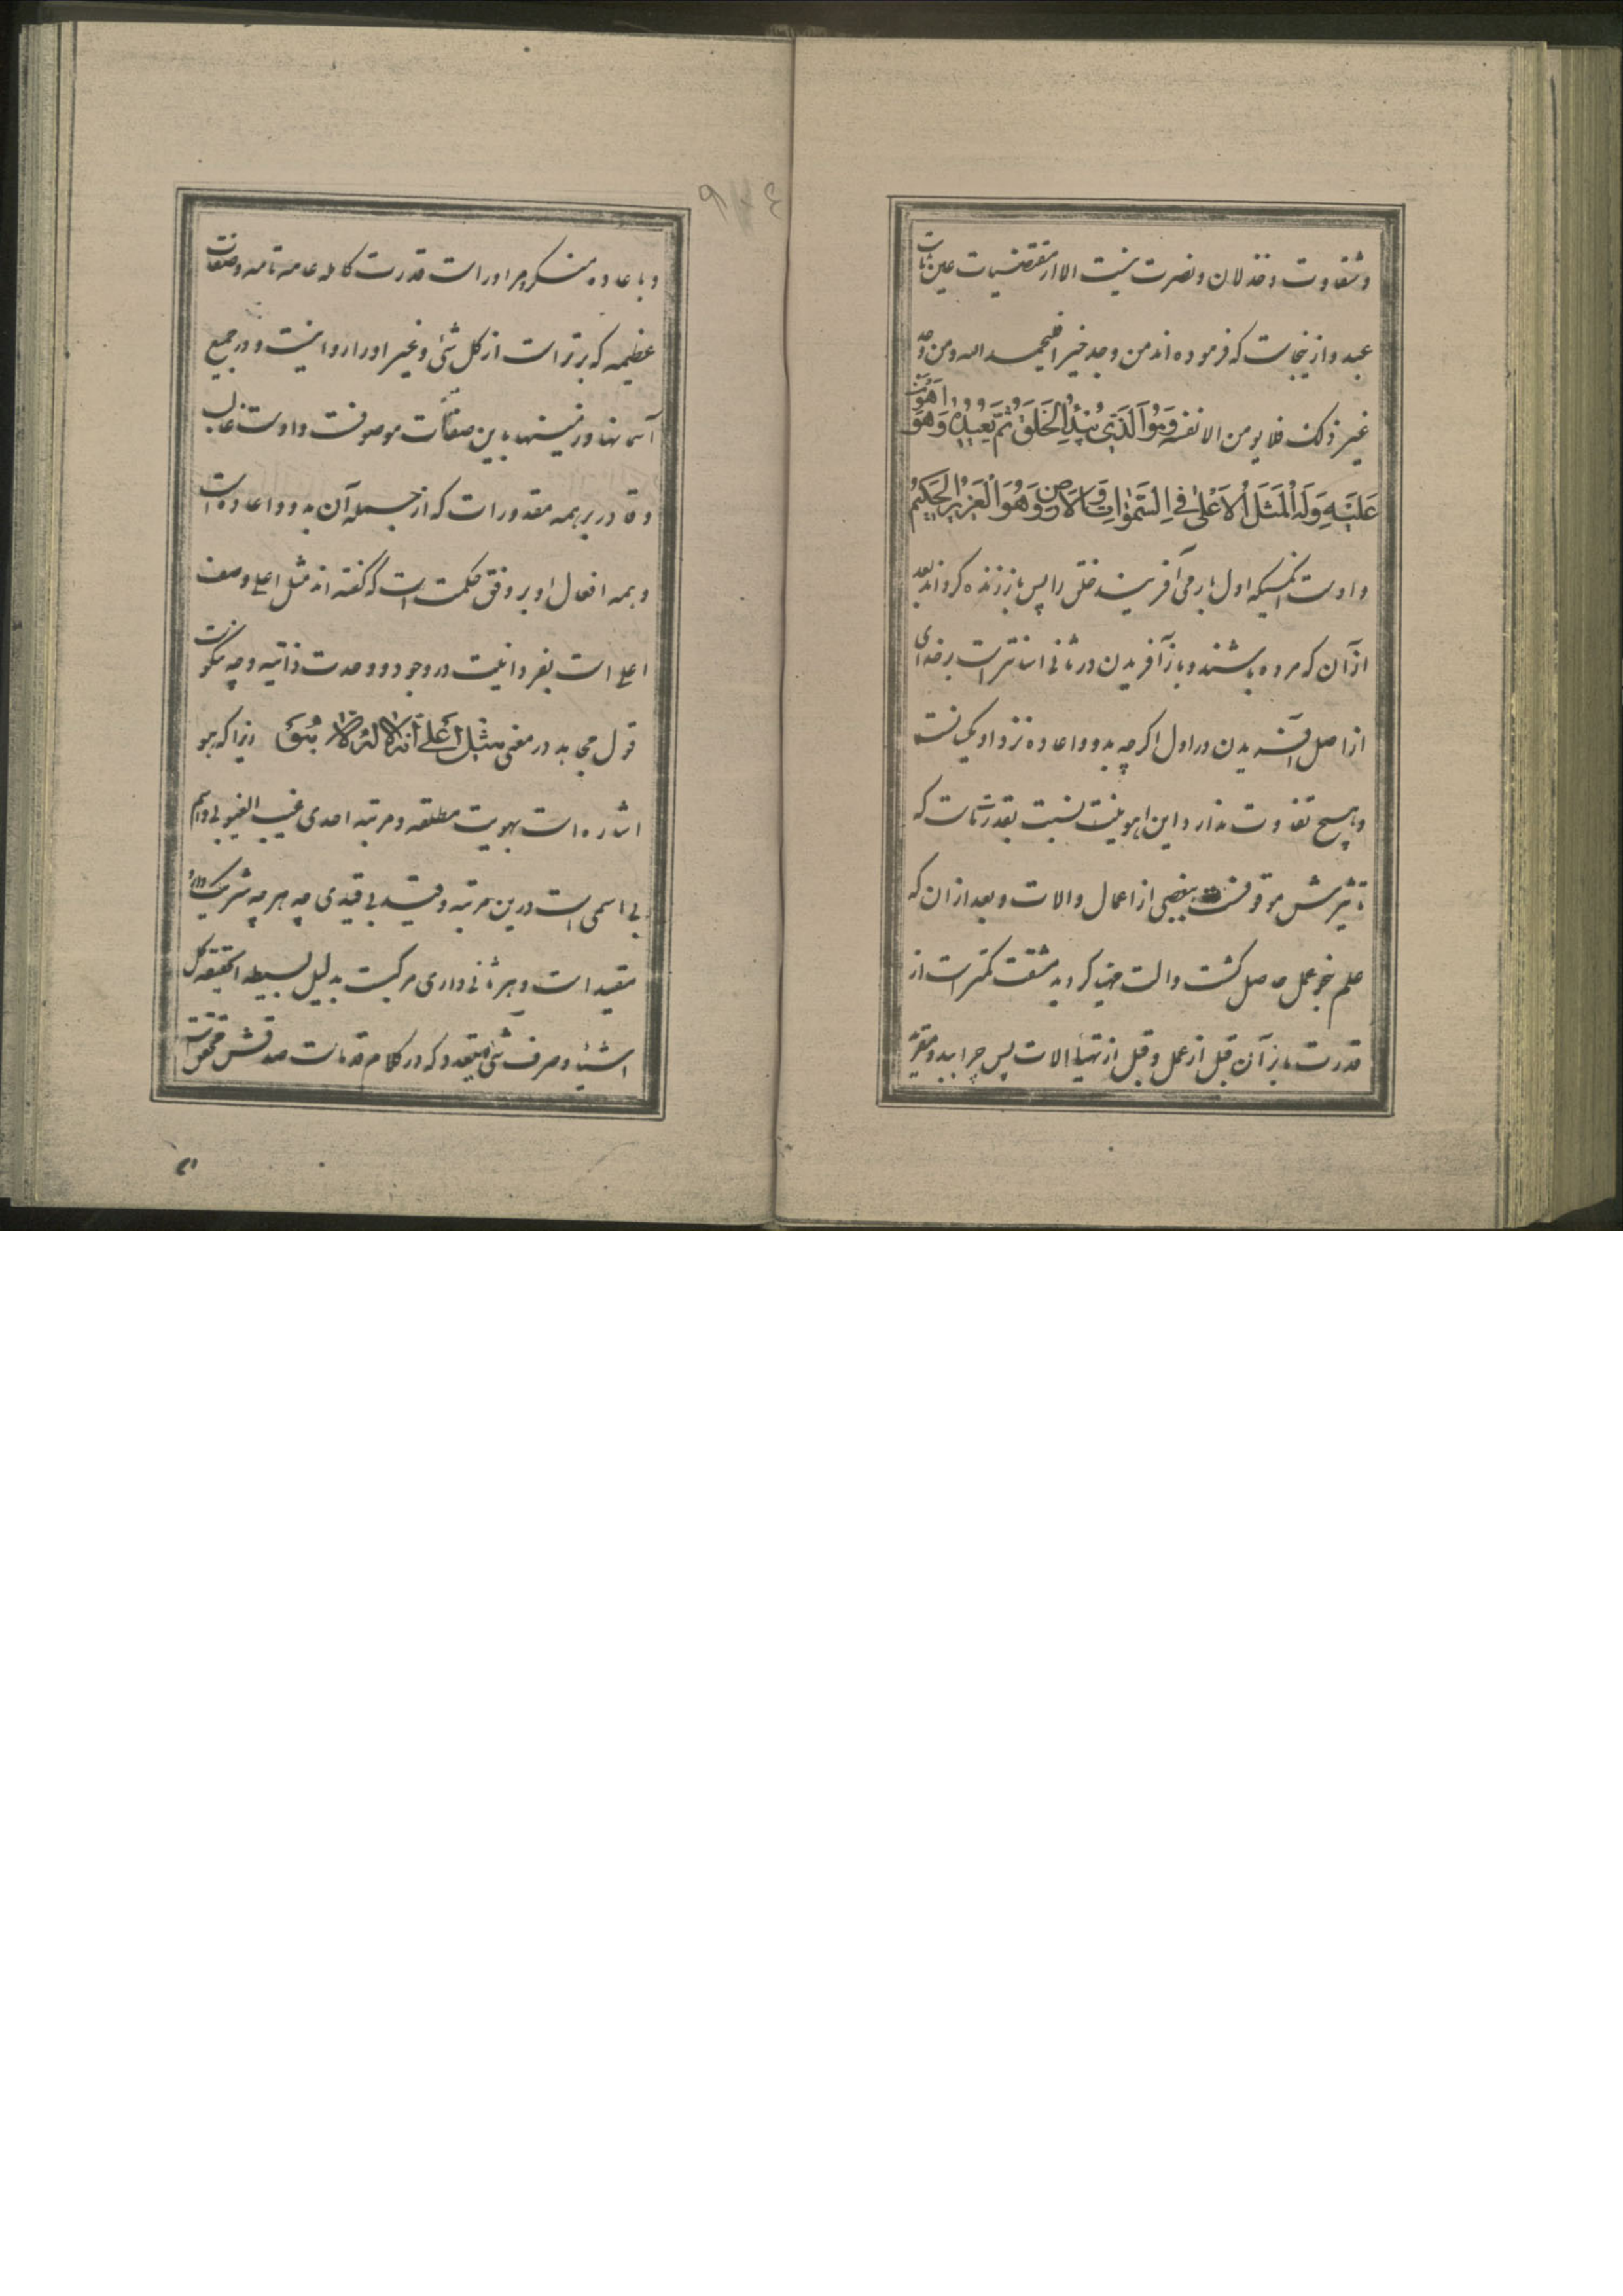 وشقاوت وخذلان ونصرت نیست الا از مقتضیات عین ثابت
عبد و از ینجاست که فرموده اند من وجد خیرا فلیحمد الله ومن وجد
غیر ذلک فلا یلومن الا نفسه وَهُوَ الَّذی یَبْدَؤُا الْخَلْقَ ثُمَّ یُعیدُهُ وَهُوَ اَهْوَنُ
عَلَیْهِ وَلَهُ الْمَثَلُ الْاَعْلٰی فِی السَّمٰوٰاتِ وَالْاَرْضِ وَهُوَ الْعَزیزُ الْحَکیمُ
و اوست انکسیکه اول بار می آفریند خلق را پس باز زنده گرداند بعد
از آن که مرده باشند و باز آفریدن در ثانی اسانتر است بر خدای
از اصل آفریدن در اول اکر چه بدو و اعاده نزد او یکیست
و هیچ تفاوت ندارد این اهونیت نسبت بقدرتیست که
تاثیرش موقوفست ببعضی از اعمال و الات و بعد از ان که
علم نحو عمل حاصل کشت و الت مهیا کردید مشقت کمتر است از
قدرت بار آن قبل از عمل و قبل از تهیأ الات پس چرا ببدو مقرند
و باعاده منکر و مر اوراست قدرت کامله عامه تامه و صفات
عظیمه که برتر است از کل شئ و غیر او را روا نیست و در جمیع
آسمانها و زمینها باین صفات موصوفست و اوست غالب
و قادر بر همه مقدورات که از جمله آن بدو و اعاده است
و همه افعال او بر وفق حکمت است که گفته اند مثل اعلی وصف
اعلی است بفردانیت در وجود و وحدت ذاتیه و چه نیکوست
قول مجاهد در معنی مثل اَعْلٰی اَنَّهُ لٰا اِلٰهَ اِلّٰا هُوَ زیرا که هو
اشاره است بهویت مطلقه و مرتبه احدی غیب الغیوبی و اسم
بی اسمی است درین مرتبه و قید بی قیدی چه هر چه شریک دارد
مقید است و هر ثانی داری مرکبست بدلیل بسیطة الحقیقة کل
الاشیاء و صرف شئ که در کلام قدماست صدقش محقق است